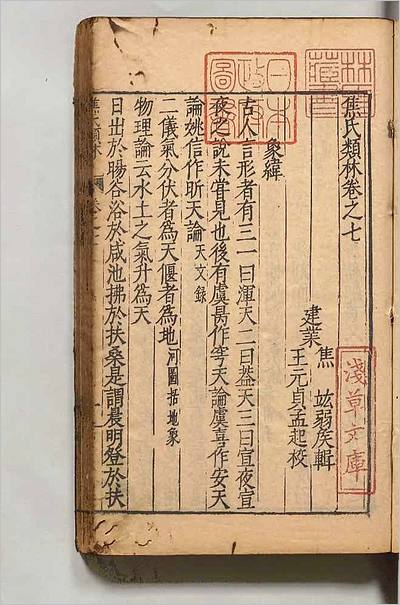 林氏藏書
日本政府圖書
焦氏類林卷之七
建業 焦 竑弱侯輯
王元貞孟起校
淺草文庫
象緯
古人言形者有三一曰渾天二曰蓋天三曰宣夜宣
夜之說未嘗見也後有虞昺作穹天論虞喜作安天
論姚信作昕天論 天文錄
二儀氣分伏者為天偃者為地 河圖括地象
物理論云水土之氣升為天
日出於暘谷浴於咸池拂於扶桑是謂晨明登於扶